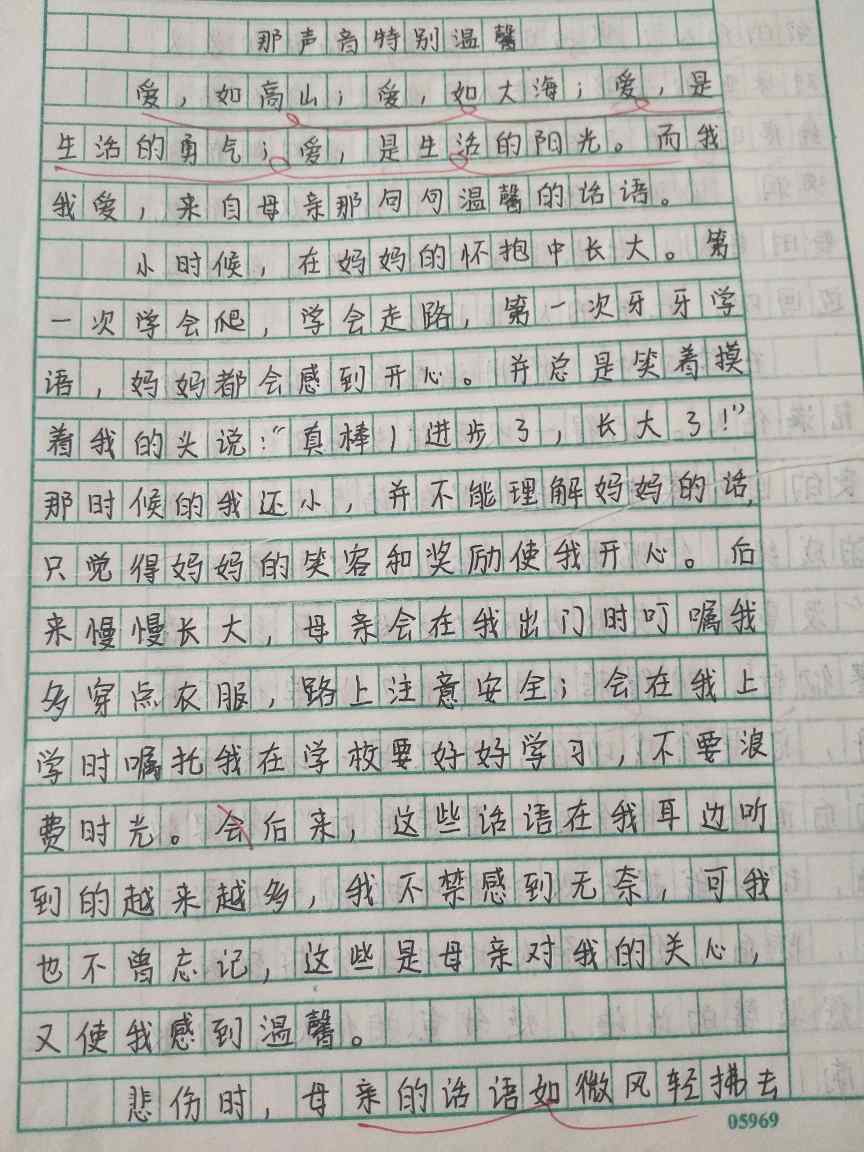 那声音特别温馨
爱，如高山；爱，如大海；爱，是
生活的勇气；爱，是生活的阳光。而我
我爱，来自母亲那句句温馨的话语。
小时候，在妈妈的怀抱中长大。第
一次学会爬，学会走路，第一次牙牙学
语，妈妈都会感到开心。并总是笑着摸
着我的头说：“真棒！进步了，长大了！”
那时候的我还小，并不能理解妈妈的话，
只觉得妈妈的笑容和奖励使我开心。后
来慢慢长大，母亲会在我出门时叮嘱我
多穿点衣服，路上注意安全；会在我上
学时嘱托我在学校要好好学习，不要浪
费时光。会后来，这些话语在我耳边听
到的越来越多，我不禁感到无奈，可我
也不曾忘记，这些是母亲对我的关心，
又使我感到温馨。
悲伤时，母亲的话语如微风轻拂去
05969